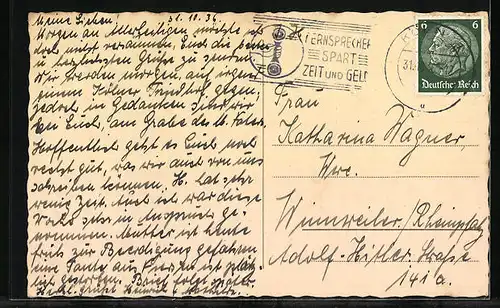 Meine Lieben!
31.10.36.
Morgen an Allerheiligen möchte ich
doch nicht versäumen, Euch die besten
u. herzlichsten Grüße zu senden.
Wir werden morgen, auf irgend
einem Kölner Friedhof gehen,
jedoch in Gedanken sind wir
bei Euch, am Grabe des lb. Vaters.
Hoffentlich geht es Euch noch
recht gut, was wir auch von uns
schreiben können. H. hat sehr
wenig Zeit. Auch ich war diese
Woche sehr in Anspruch ge-
nommen. Mutter ist heute
früh zur Beerdigung gefahren
eine Tante aus ist plötz-
lich gestorben. Brief folgt später.
Herzl. Grüße
FERNSPRECHER
SPART
ZEIT UND GELD
31.
6 6
Deutsches Reich
Frau
Katharina Wagner
Wwe.
Winnweiler/Rheinpfalz
Adolf-Hitler-Straße
141a.